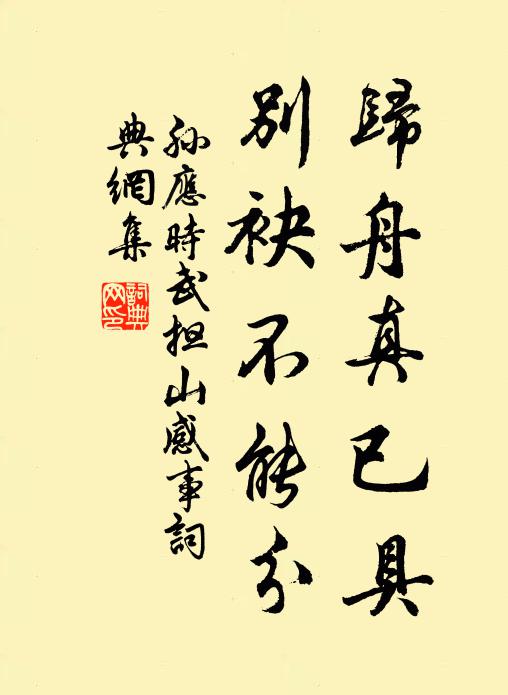 歸舟真已具
別袂不能分
孫應時武担山感事詞
典網集
詞典
网印